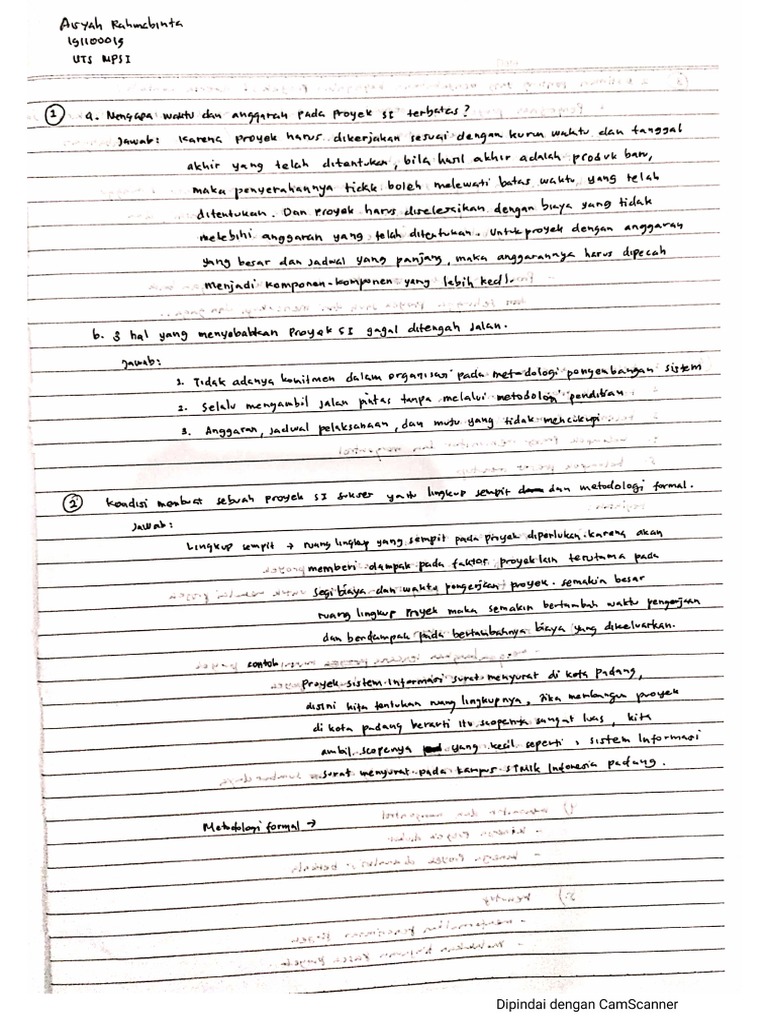 Aisyah Rahmabinta
191100019
UTS MPSI
1 a. Mengapa waktu dan anggaran pada proyek SI terbatas?
Jawab: Karena proyek harus dikerjakan sesuai dengan kurun waktu dan tanggal
akhir yang telah ditentukan, bila hasil akhir adalah produk baru,
maka penyerahannya tidak boleh melewati batas waktu yang telah
ditentukan. Dan Proyek harus diselesaikan dengan biaya yang tidak
melebihi anggaran yang telah ditentukan. Untuk proyek dengan anggaran
yang besar dan jadwal yang panjang, maka anggarannya harus dipecah
menjadi komponen-komponen yang lebih kecil.
b. 3 hal yang menyebabkan Proyek SI gagal ditengah jalan.
Jawab:
1. Tidak adanya komitmen dalam organisasi pada metodologi pengembangan sistem
2. Selalu mengambil jalan pintas tanpa melalui metodologi
3. Anggaran, jadwal pelaksanaan, dan mutu yang tidak mencukupi
2 Kondisi membuat sebuah proyek SI sukses yaitu lingkup sempit dan metodologi formal.
Jawab:
Lingkup sempit → ruang lingkup yang sempit pada proyek diperlukan karena akan
memberi dampak pada faktor proyek lain terutama pada
segi biaya dan waktu pengerjaan proyek. semakin besar
ruang lingkup Proyek maka semakin bertambah waktu pengerjaan
dan berdampak pada bertambahnya biaya yang dikeluarkan.
contoh
Proyek sistem Informasi surat menyurat di kota Padang,
disini kita tentukan ruang lingkupnya, Jika membangun proyek
di kota padang berarti itu scopenya sangat luas, kita
ambil scopenya yang kecil seperti, sistem Informasi
surat menyurat pada kampus STMIK Indonesia Padang.
Metodologi formal →
Dipindai dengan CamScanner